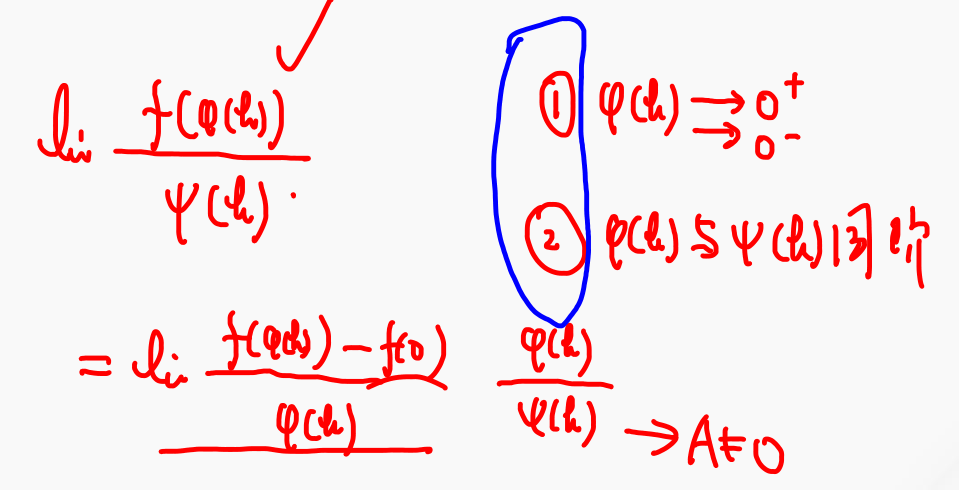 lim f(φ(h)) / ψ(h)
① φ(h) → 0⁺
→ 0⁻
② φ(h) 与 ψ(h) 同阶
= lim f(φ(h)) − f(0) / φ(h) φ(h) / ψ(h) → A ≠ 0